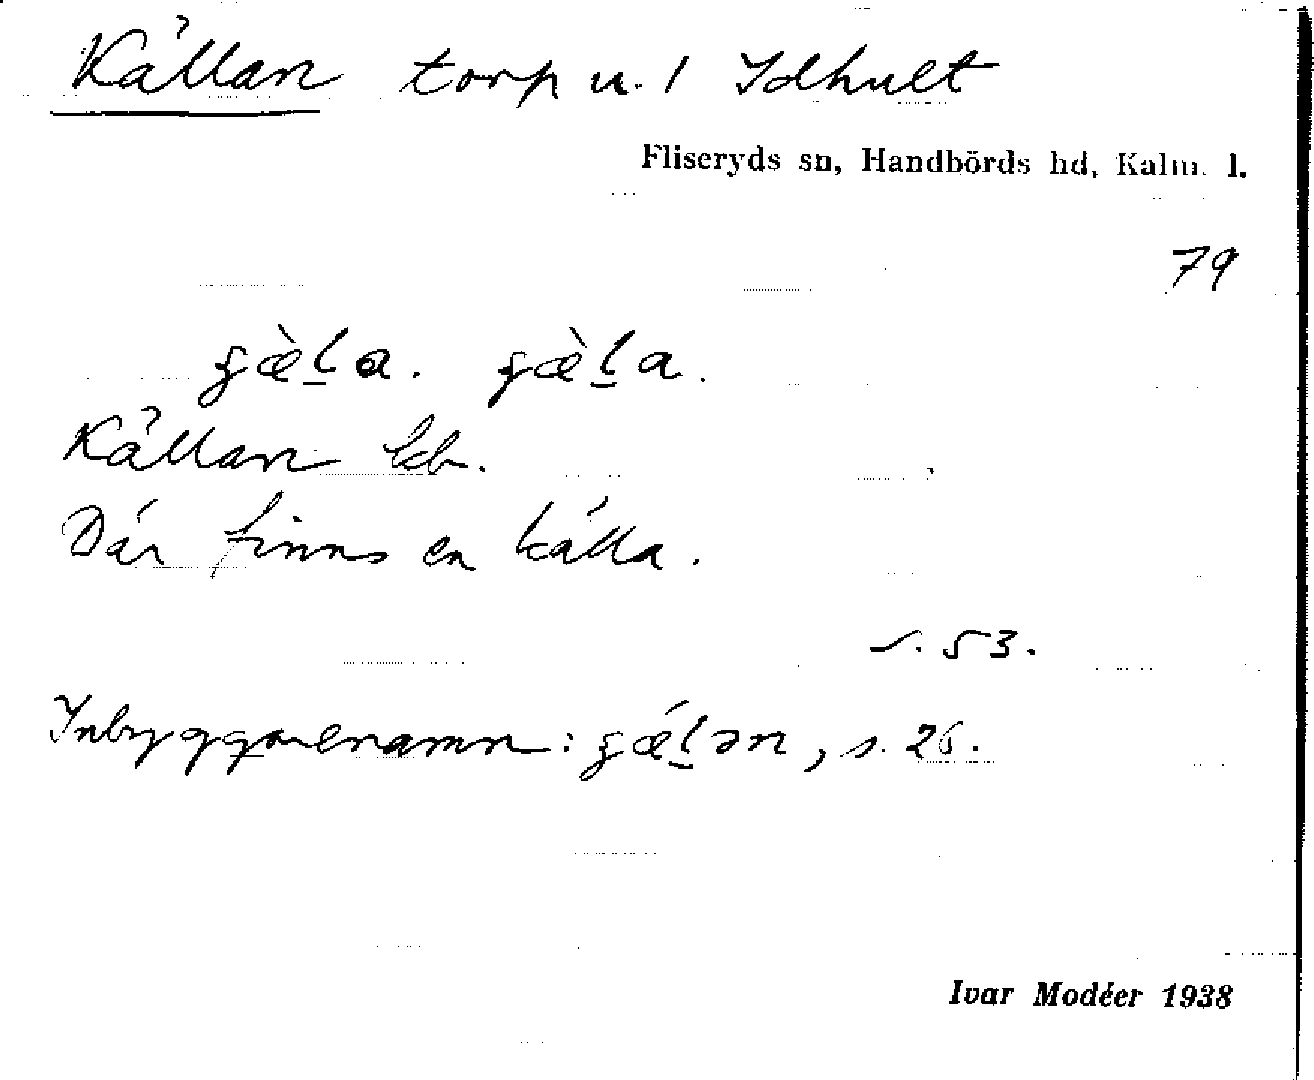 Källan torp u. 1 Idhult
Fliseryds sn, Handbörds hd, Kalm. l.
79
Källan kb.
Där finns en källa.
s. 53.
Inbyggarenamn: , s. 26.
Ivar Modéer 1938